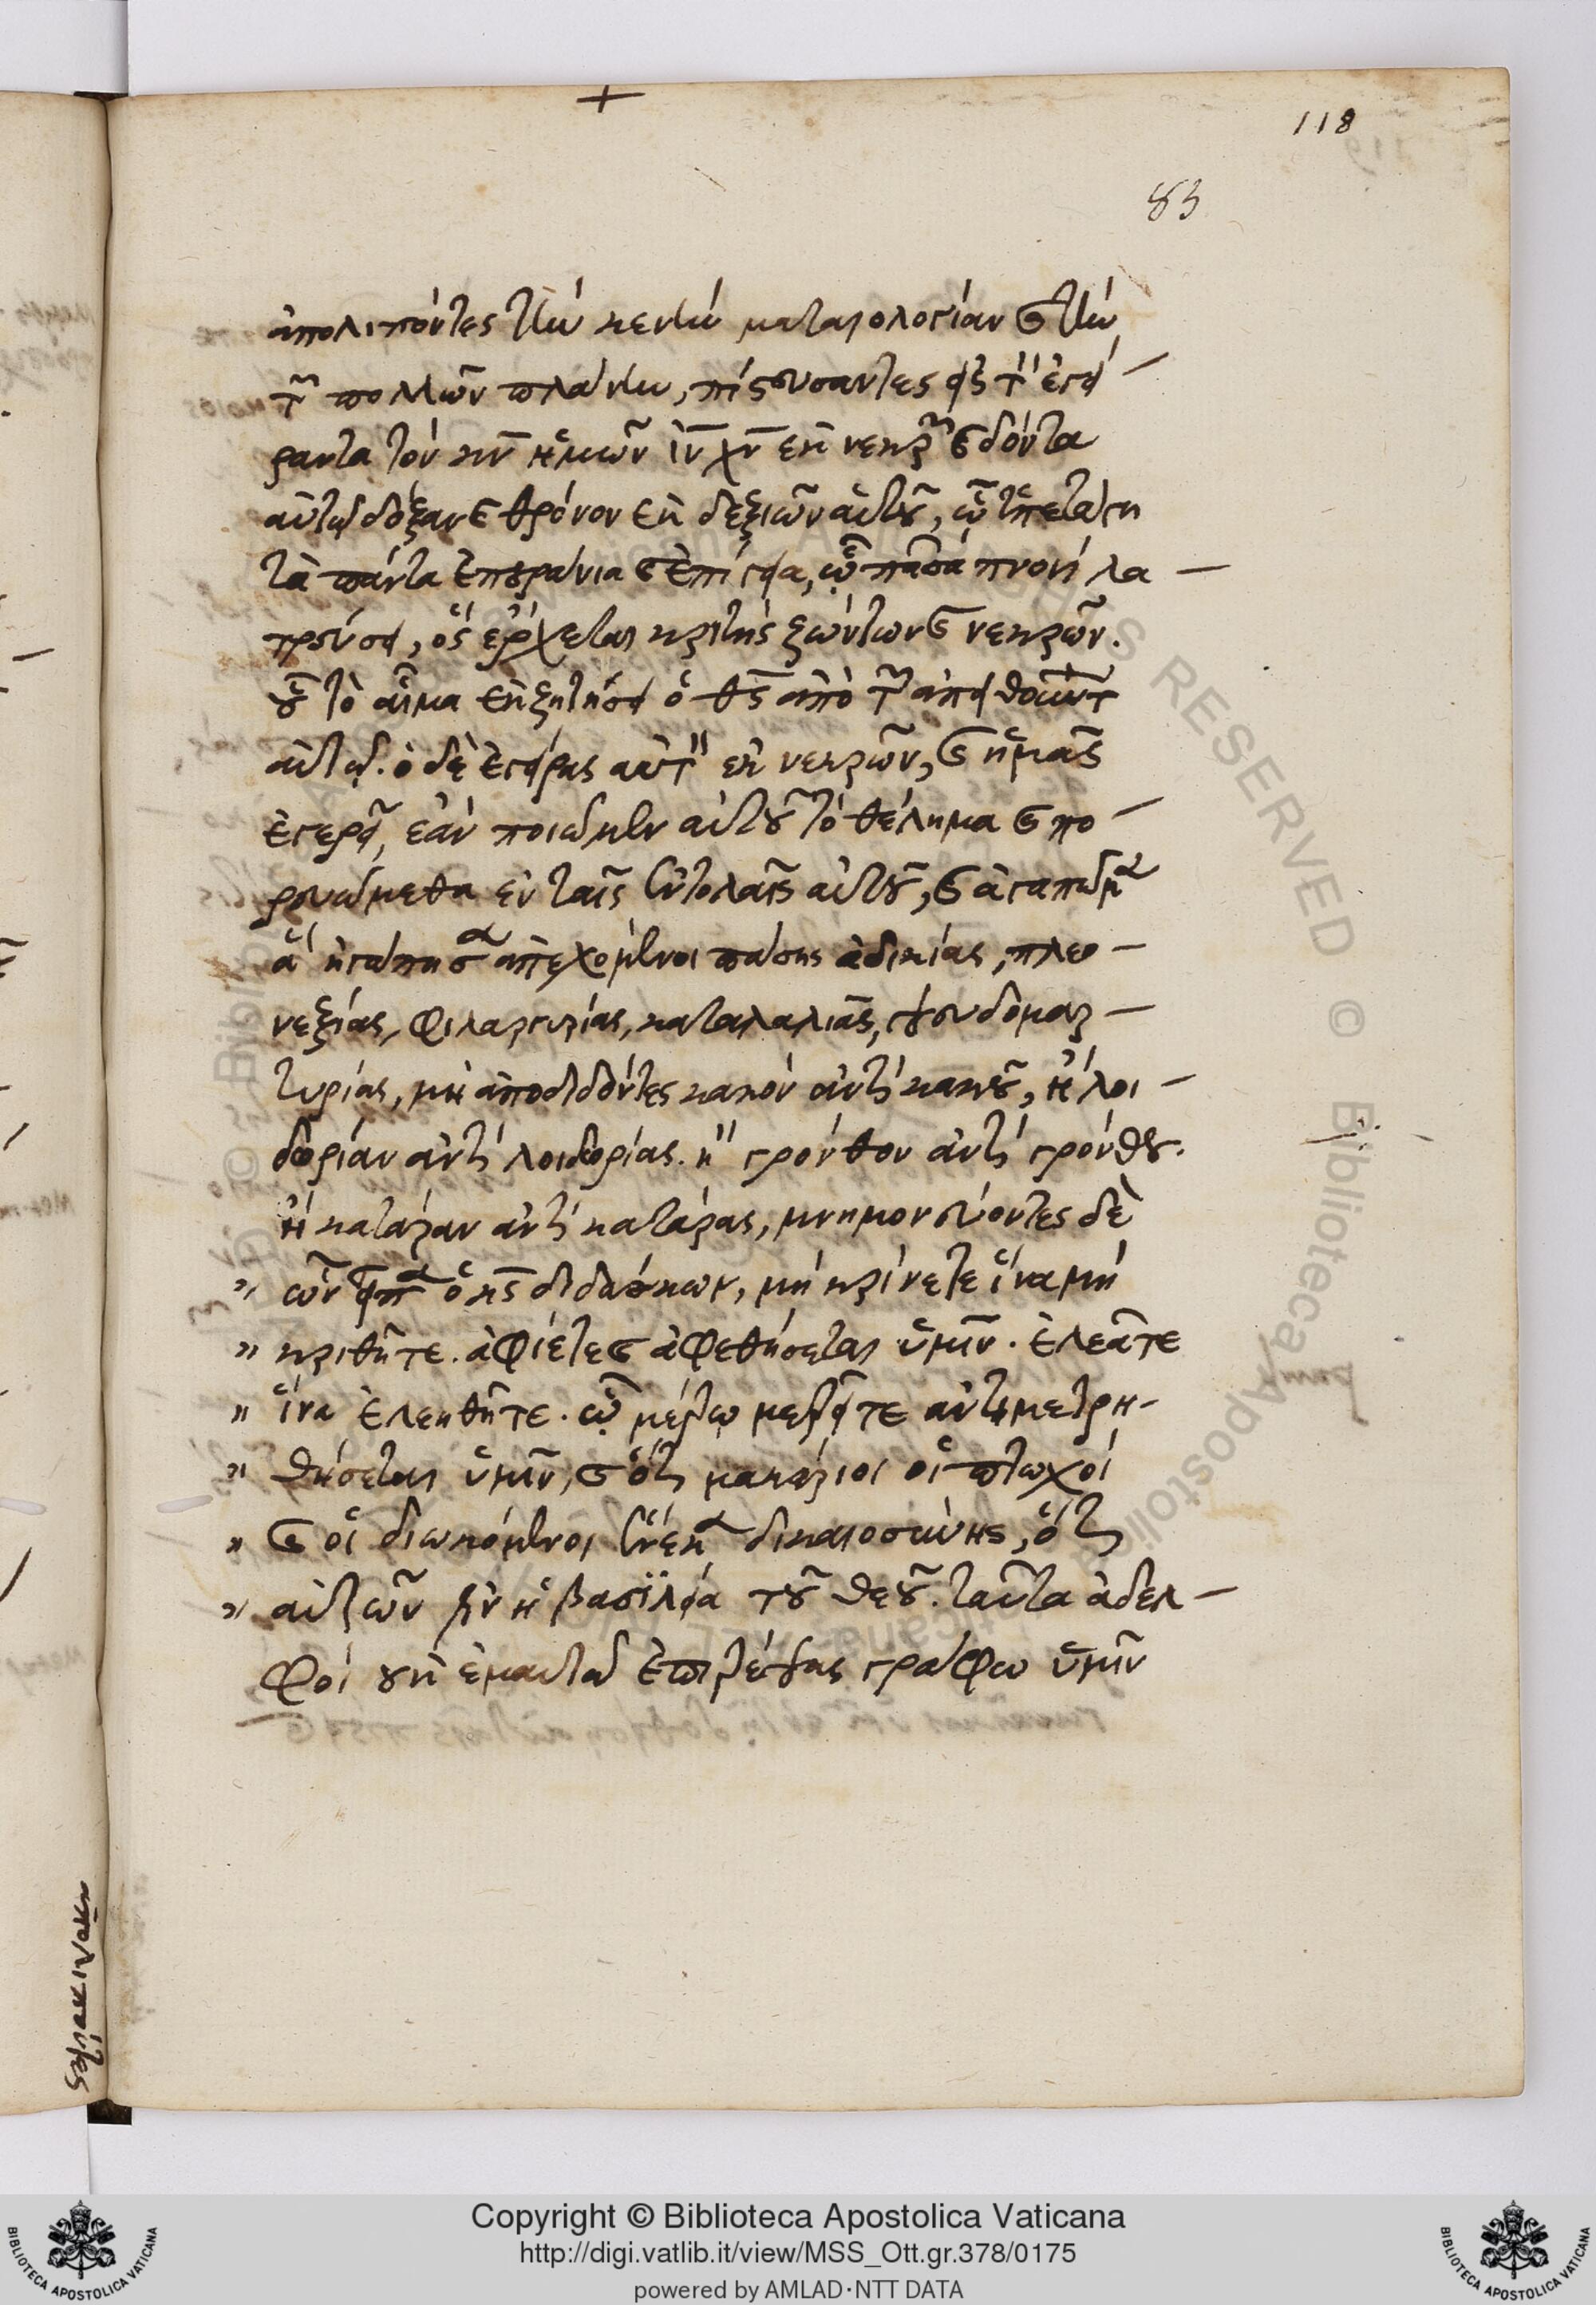 118
83
ἀπολιπόντες τὴν κενὴν ματαιολογίαν καὶ τὴν
τῶν πολλῶν πλάνην, πιστεύσαντες εἰς τὸν ἐγεί
ραντα τὸν κν ἡμῶν ιν χν ἐκ νεκρῶν καὶ δόντα
αὐτῷ δόξαν καὶ θρόνον ἐκ δεξιῶν αὐτοῦ, ᾧ ὑπετάγη
τὰ πάντα ἐπουράνια καὶ ἐπίγεια, ᾧ πᾶσα πνοὴ λα
τρεύσει, ὃς ἔρχεται κριτὴς ζώντων καὶ νεκρῶν.
οὗ τὸ αἷμα ἐκζητήσει ὁ θς ἀπὸ τῶν ἀπειθούντων
αὐτῷ. ὁ δὲ ἐγείρας αὐτὸν ἐκ νεκρῶν, καὶ ἡμᾶς
ἐγερεῖ, ἐὰν ποιῶμεν αὐτοῦ τὸ θέλημα καὶ πο
ρευώμεθα ἐν ταῖς ἐντολαῖς αὐτοῦ, καὶ ἀγαπῶμεν
ἃ ἠγάπησεν ἀπεχόμενοι πάσης ἀδικίας, πλεο
νεξίας, φιλαργυρίας, καταλαλιᾶς, ψευδομαρ
τυρίας, μὴ ἀποδιδόντες κακὸν ἀντὶ κακοῦ, ἢ λοι
δορίαν ἀντὶ λοιδορίας. ἢ γρόνθον ἀντὶ γρόνθου.
ἢ κατάραν ἀντὶ κατάρας, μνημονεύοντες δὲ
" ὧν εἶπεν ὁ κς διδάσκων, μὴ κρίνετε ἵνα μὴ
" κριθῆτε. ἀφίετε καὶ ἀφεθήσεται ὑμῖν. ἐλεᾶτε
" ἵνα ἐλεηθῆτε. ᾧ μέτρῳ μετρεῖτε ἀντιμετρη-
" θήσεται ὑμῖν, καὶ ὅτι μακάριοι οἱ πτωχοὶ
" καὶ οἱ διωκόμενοι ἕνεκεν δικαιοσύνης, ὅτι
" αὐτῶν ἐστὶν ἡ βασϊλεία τοῦ θεοῦ. ταῦτα ἀδελ
φοὶ οὐκ ἐμαυτῷ ἐπιτρέψας γράφω ὑμῖν
Copyright © Biblioteca Apostolica Vaticana
http://digi.vatlib.it/view/MSS_Ott.gr.378/0175
powered by AMLAD·NTT DATA